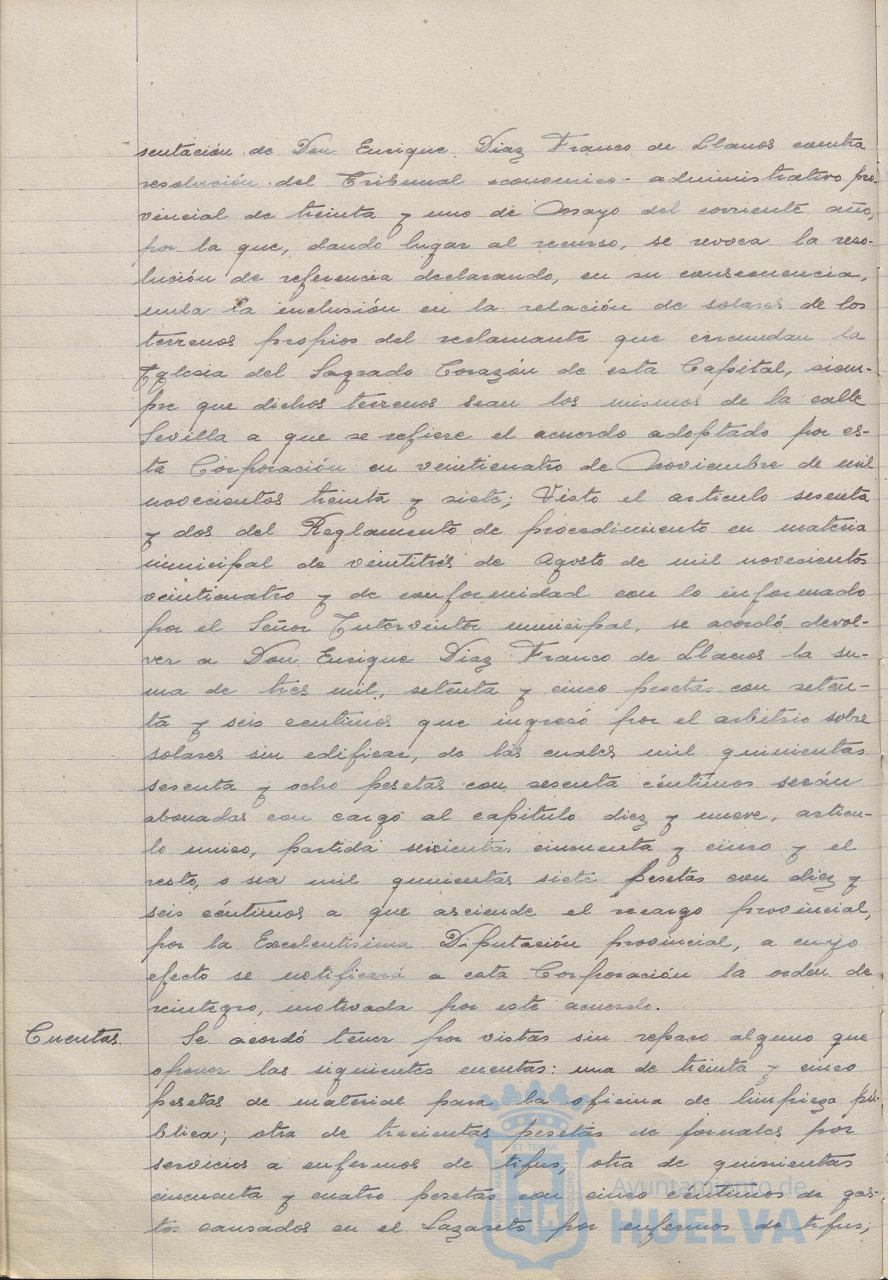 sentación de Don Enrique Diaz Franco de Llanos contra
resolución del Tribunal economico-administrativo pro-
vincial de treinta y uno de Mayo del corriente año,
por la que, dando lugar al recurso, se revoca la reso-
lución de referencia declarando, en su consecuencia,
nula la inclusión en la relación de solares de los
terrenos propios del reclamante que circundan la
Iglesia del Sagrado Corazón de esta Capital, siem-
pre que dichos terrenos sean los mismos de la calle
Sevilla a que se refiere el acuerdo adoptado por es-
ta Corporación en veinticuatro de Noviembre de mil
novecientos treinta y siete; Visto el articulo sesenta
y dos del Reglamento de procedimiento en materia
municipal de veintitrés de Agosto de mil novecientos
veinticuatro y de conformidad con lo informado
por el Señor Interventor municipal, se acordó devol-
ver a Don Enrique Diaz Franco de Llanos la su-
ma de tres mil, setenta y cinco pesetas con seten-
ta y seis centimos que ingresó por el arbitrio sobre
solares sin edificar, de las cuales mil quinientas
sesenta y ocho pesetas con sesenta céntimos serán
abonadas con cargo al capitulo diez y nueve, articu-
lo unico, partida seiscientas cincuenta y cinco y el
resto, o sea mil quinientas siete pesetas con diez y
seis céntimos a que asciende el recargo provincial,
por la Excelentisima Diputación provincial, a cuyo
efecto se notificará a esta Corporación la orden de
reintegro, motivada por este acuerdo.
Cuentas Se acordó tener por vistas sin reparo alguno que
oponer las siguientes cuentas: una de treinta y cinco
pesetas de material para la oficina de limpieza pú-
blica; otra de trecientas pesetas de jornales por
servicios a enfermos de tifus; otra de quinientas
cincuenta y cuatro pesetas con cinco centimos de gas-
tos causados en el Lazareto por enfermos de tifus;
Ayuntamiento de
HUELVA